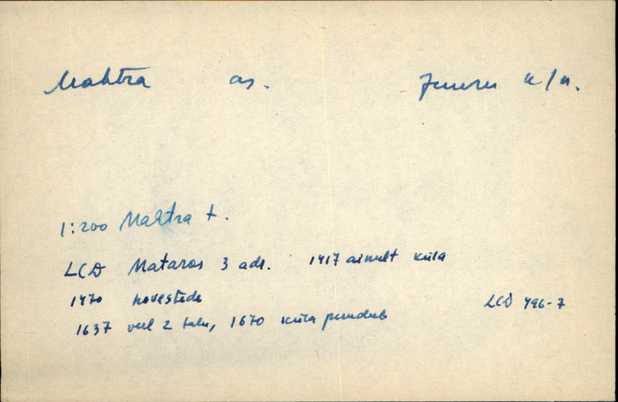 Mahtra as. Juuru k/n.
1:200 Mahtra t.
LCD Mataros 3 adr. 1417 ainult küla
1470 hovestede
1637 veel 2 talu, 1670 küla puudub
LCD 496-7